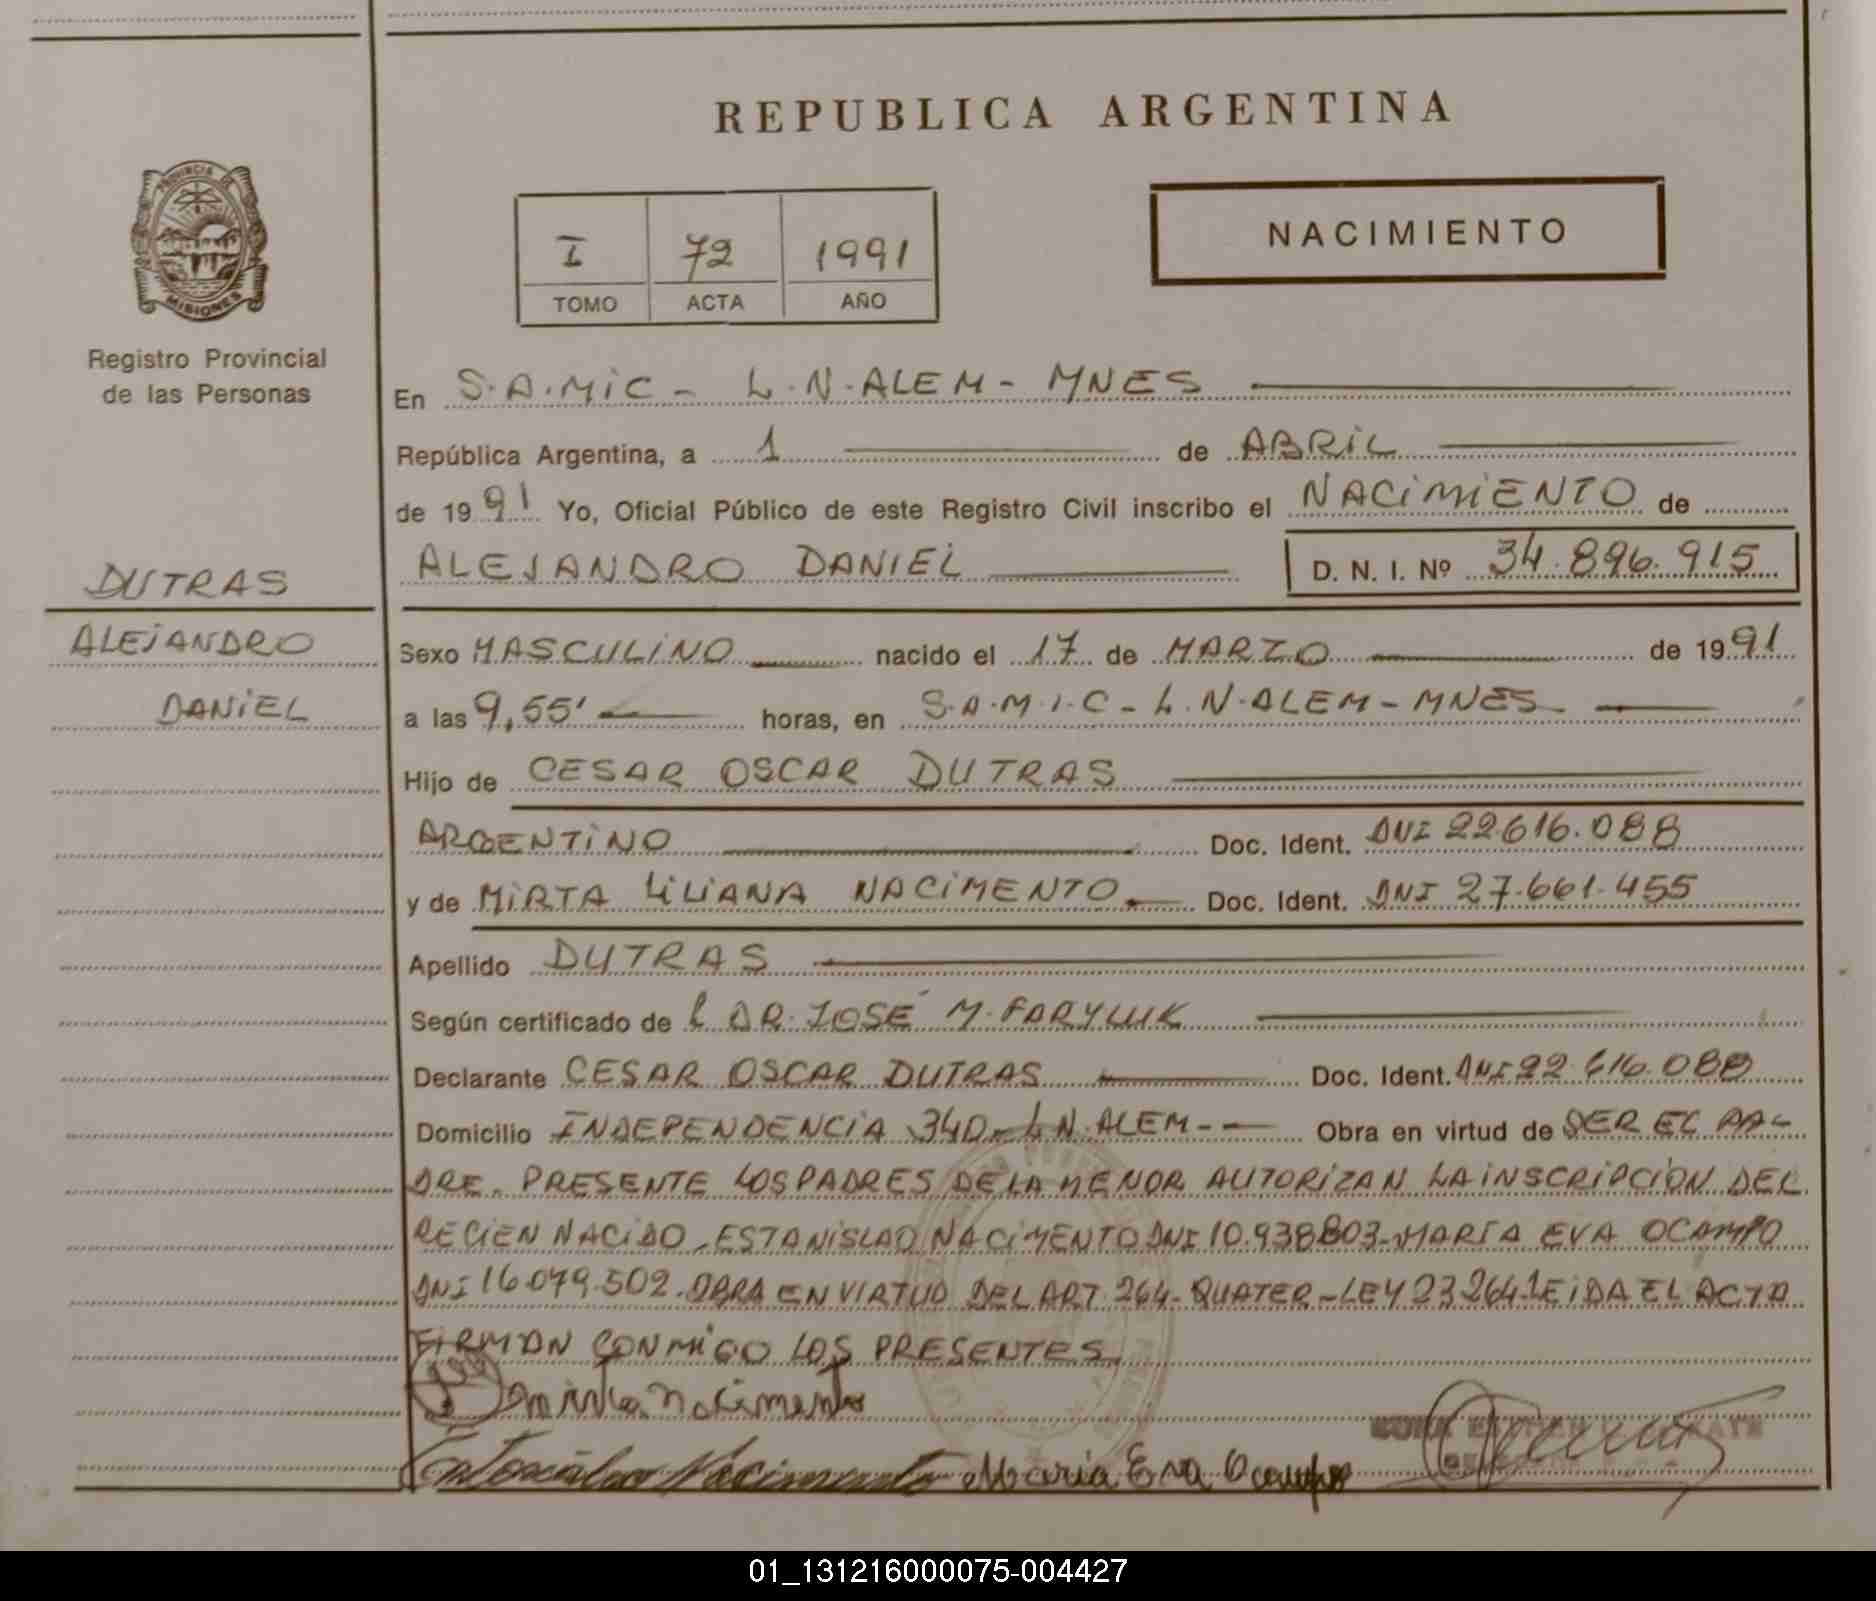 REPUBLICA ARGENTINA
PROVINCIA DE MISIONES
Registro Provincial
de las Personas
I 72 1991
TOMO ACTA AÑO
NACIMIENTO
En S.A.MiC - L.N.ALEM - MNES
República Argentina, a 1 de ABRIL
de 1991 Yo, Oficial Público de este Registro Civil inscribo el NACIMIENTO de
ALEJANDRO DANIEL D. N. I. Nº 34.896.915
DUTRAS
ALEJANDRO
DANIEL
Sexo MASCULINO nacido el 17 de MARZO de 1991
a las 9,55' horas, en S.A.M.I.C - L.N.ALEM - MNES
Hijo de CESAR OSCAR DUTRAS
ARGENTINO Doc. Ident. DNI 22.616.088
y de MIRTA LILIANA NACIMENTO Doc. Ident. DNI 27.661.455
Apellido DUTRAS
Según certificado de L DR. JOSÉ M. FARYLUK
Declarante CESAR OSCAR DUTRAS Doc. Ident. DNI 22.616.088
Domicilio INDEPENDENCIA 340 - L.N.ALEM - Obra en virtud de SER EL PA-
DRE. PRESENTE LOS PADRES DE LA MENOR AUTORIZAN LA INSCRIPCION DEL
RECIEN NACIDO, ESTANISLAO NACIMENTO DNI 10.938803-MARÍA EVA OCAMPO
DNI 16.079.502. OBRA EN VIRTUD DEL ART 264. QUATER - LEY 23264. LEIDA EL ACTA
FIRMAN CONMIGO LOS PRESENTES
mirta nacimento
Nacimento Maria Eva Ocampo
01_131216000075-004427